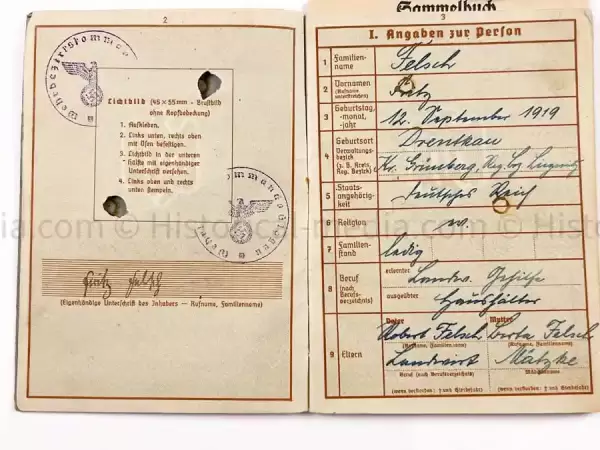 2
Wehrbezirkskommando
Lichtbild (45 × 55 mm - Brustbild
ohne Kopfbedeckung)
1. Aufkleben.
2. Links unten, rechts oben
mit Ösen befestigen.
3. Lichtbild in der unteren
Hälfte mit eigenhändiger
Unterschrift versehen.
4. Links oben und rechts
unten stempeln.
Wehrbezirkskommando Glogau
Fritz Felsch
(Eigenhändige Unterschrift des Inhabers — Rufname, Familienname)
Sammelbuch
3
I. Angaben zur Person
1 Familien-
name
Felsch
2 Vornamen
(Rufname
unterstreichen)
Fritz
3 Geburtstag,
-monat,
-jahr
12. September 1919
4 Geburtsort
Verwaltungs-
bezirk
(z. B. Kreis,
Reg. Bezirk)
Drentkau
Kr. Grünberg, Reg. Bez. Liegnitz
5 Staats-
angehörig-
keit
Deutsches Reich
6 Religion
ev.
7 Familien-
stand
ledig
8 Beruf
(nach
Berufs-
verzeichnis)
erlernter
Landw. Gehilfe
ausgeübter
Haushälter
9 Eltern
Vater Mutter
Robert Felsch Berta Felsch
(Rufname, Familienname) (Rufname, Familienname)
Landwirt Matzke
Beruf (nach Berufsverzeichnis) Mädchenname
(wenn verstorben: † und Sterbejahr) (wenn verstorben: † und Sterbejahr)
media.com © Historical-media.com © Histo